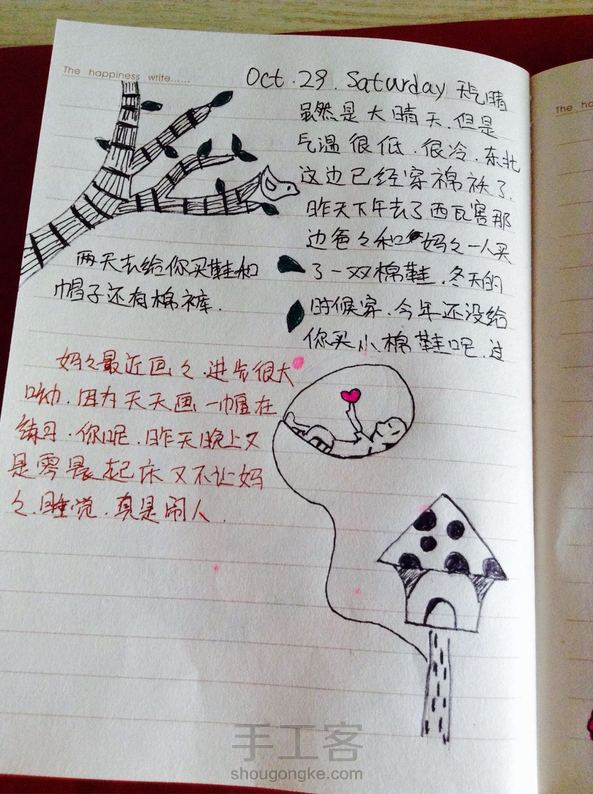 The happiness write......
Oct. 29. Saturday 天气晴
虽然是大晴天.但是
气温很低.很冷.东北
这边已经穿棉袄了.
昨天下午去了西瓦窑那
边爸々和妈々一人买
了一双棉鞋.冬天的
时候穿.今年还没给
你买小棉鞋呢.过
两天去给你买鞋和
帽子还有棉裤.
妈々最近画々.进步很大
呦.因为天天画一幅在
练习.你呢.昨天晚上又
是零晨起床又不让妈
々睡觉.真是闹人.
The ha
手工客
shougongke.com